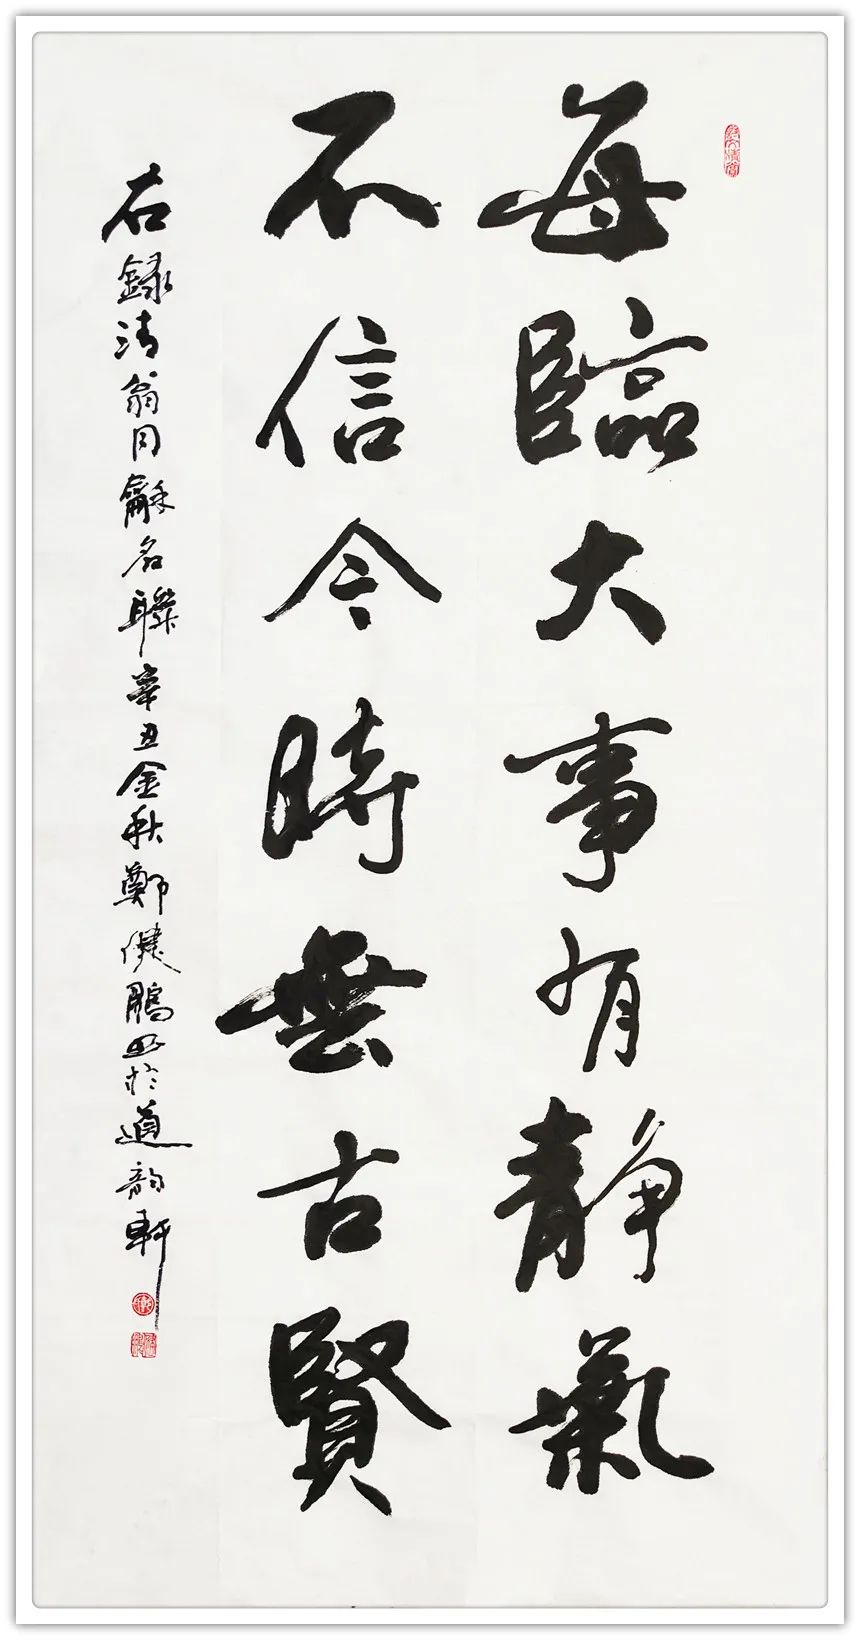 每臨大事有靜氣
不信今時無古賢
右録清翁同龢名聯辛丑金秋鄭健鵬书於道韵軒